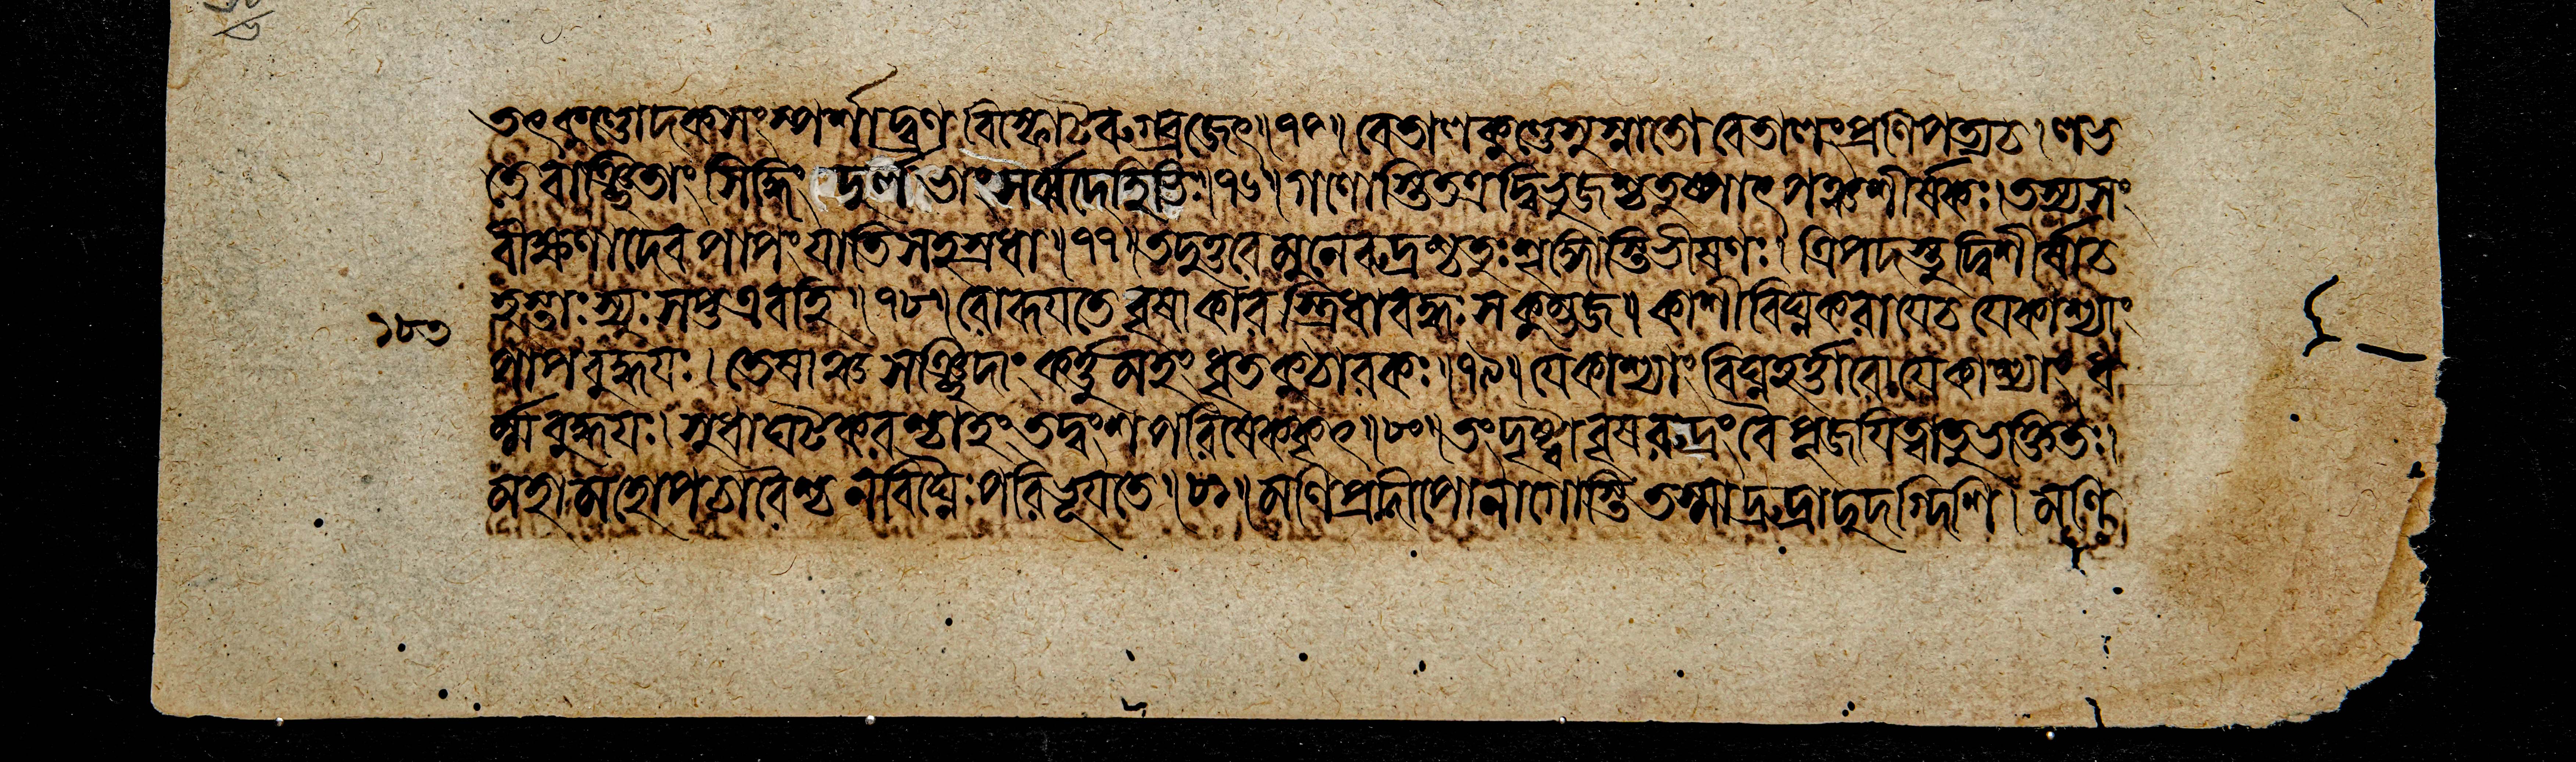 তৎকুণ্ডোদকসংস্পর্শাদ্ব্রণবিস্ফোটরুগ্ব্রজেৎ॥৭৫॥ বেতালকুণ্ডে সুস্নাতো বেতালং প্রণিপত্য চ। লভ
তে বাঞ্ছিতাং সিদ্ধিং দুর্লভাং সর্ব্বদেহিভিঃ॥৭৬॥ গণোস্তি তত্র দ্বিভুজশ্চতুষ্পাৎপঞ্চশীর্ষকঃ। তস্য সং
বীক্ষণাদেব পাপং যাতি সহস্রধা॥৭৭॥ তদুত্তরে মুনে রুদ্রশ্চতুঃশৃঙ্গোস্তি ভীষণঃ। ত্রিপদস্তু দ্বিশীর্ষা চ
হস্তাঃ স্যুঃ সপ্ত এব হি॥৭৮॥ রোরূয়তে বৃষাকারস্ত্রিধা বদ্ধঃ স কুম্ভজ॥ কাশীবিঘ্নকরা যে চ যে কাশ্যাং
১৮৩
পাপবুদ্ধয়ঃ। তেষাঞ্চ সঞ্ছিদাং কর্ত্তুমহং ধৃতকুঠারকঃ॥৭৯॥ যে কাশ্যাং বিঘ্নহর্ত্তারো যে কাশ্যাং ধ
র্ম্মবুদ্ধয়ঃ। সুধাঘটকরশ্চাহং তদ্বংশপরিষেককৃৎ॥৮০॥ তং দৃষ্ট্বা বৃষরুদ্রং বৈ পূজয়িত্বা তু ভক্তিতঃ।
মহামহোপচারৈশ্চ ন বিঘ্নৈঃ পরিভূয়তে॥৮১॥ মণিপ্রদীপো নাগোস্তি তস্মাদ্রুদ্রাদুদগ্দিশি। মণি